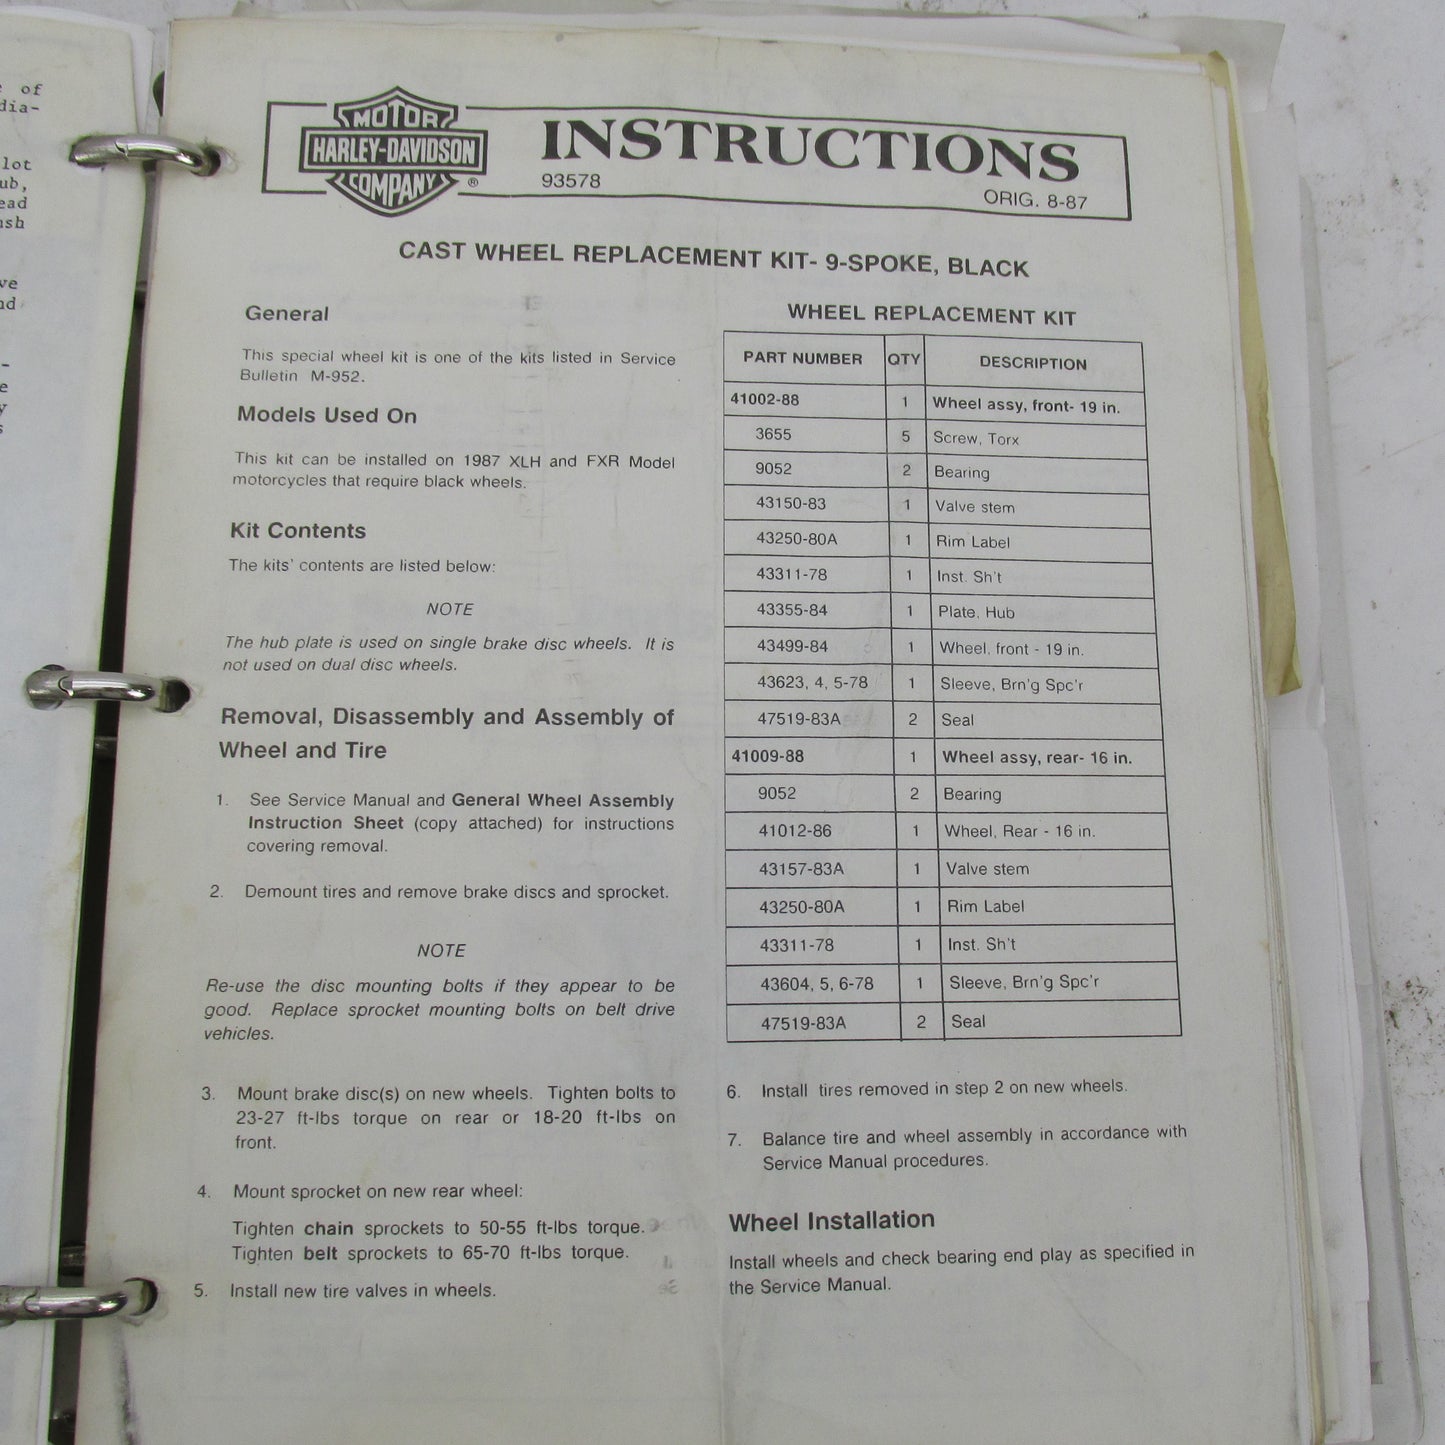 of
dia-
lot
ub,
ead
ash
ve
nd
-
e
y
s
MOTOR
HARLEY-DAVIDSON
COMPANY
®
INSTRUCTIONS
93578
ORIG. 8-87
CAST WHEEL REPLACEMENT KIT- 9-SPOKE, BLACK
General
This special wheel kit is one of the kits listed in Service
Bulletin M-952.
Models Used On
This kit can be installed on 1987 XLH and FXR Model
motorcycles that require black wheels.
Kit Contents
The kits' contents are listed below:
NOTE
The hub plate is used on single brake disc wheels. It is
not used on dual disc wheels.
Removal, Disassembly and Assembly of
Wheel and Tire
1. See Service Manual and General Wheel Assembly
Instruction Sheet (copy attached) for instructions
covering removal.
2. Demount tires and remove brake discs and sprocket.
NOTE
Re-use the disc mounting bolts if they appear to be
good. Replace sprocket mounting bolts on belt drive
vehicles.
3. Mount brake disc(s) on new wheels. Tighten bolts to
23-27 ft-lbs torque on rear or 18-20 ft-lbs on
front.
4. Mount sprocket on new rear wheel:
Tighten chain sprockets to 50-55 ft-lbs torque.
Tighten belt sprockets to 65-70 ft-lbs torque.
5. Install new tire valves in wheels.
WHEEL REPLACEMENT KIT
PART NUMBER QTY DESCRIPTION
41002-88 1 Wheel assy, front- 19 in.
3655 5 Screw, Torx
9052 2 Bearing
43150-83 1 Valve stem
43250-80A 1 Rim Label
43311-78 1 Inst. Sh't
43355-84 1 Plate, Hub
43499-84 1 Wheel, front - 19 in.
43623, 4, 5-78 1 Sleeve, Brn'g Spc'r
47519-83A 2 Seal
41009-88 1 Wheel assy, rear- 16 in.
9052 2 Bearing
41012-86 1 Wheel, Rear - 16 in.
43157-83A 1 Valve stem
43250-80A 1 Rim Label
43311-78 1 Inst. Sh't
43604, 5, 6-78 1 Sleeve, Brn'g Spc'r
47519-83A 2 Seal
6. Install tires removed in step 2 on new wheels.
7. Balance tire and wheel assembly in accordance with
Service Manual procedures.
Wheel Installation
Install wheels and check bearing end play as specified in
the Service Manual.